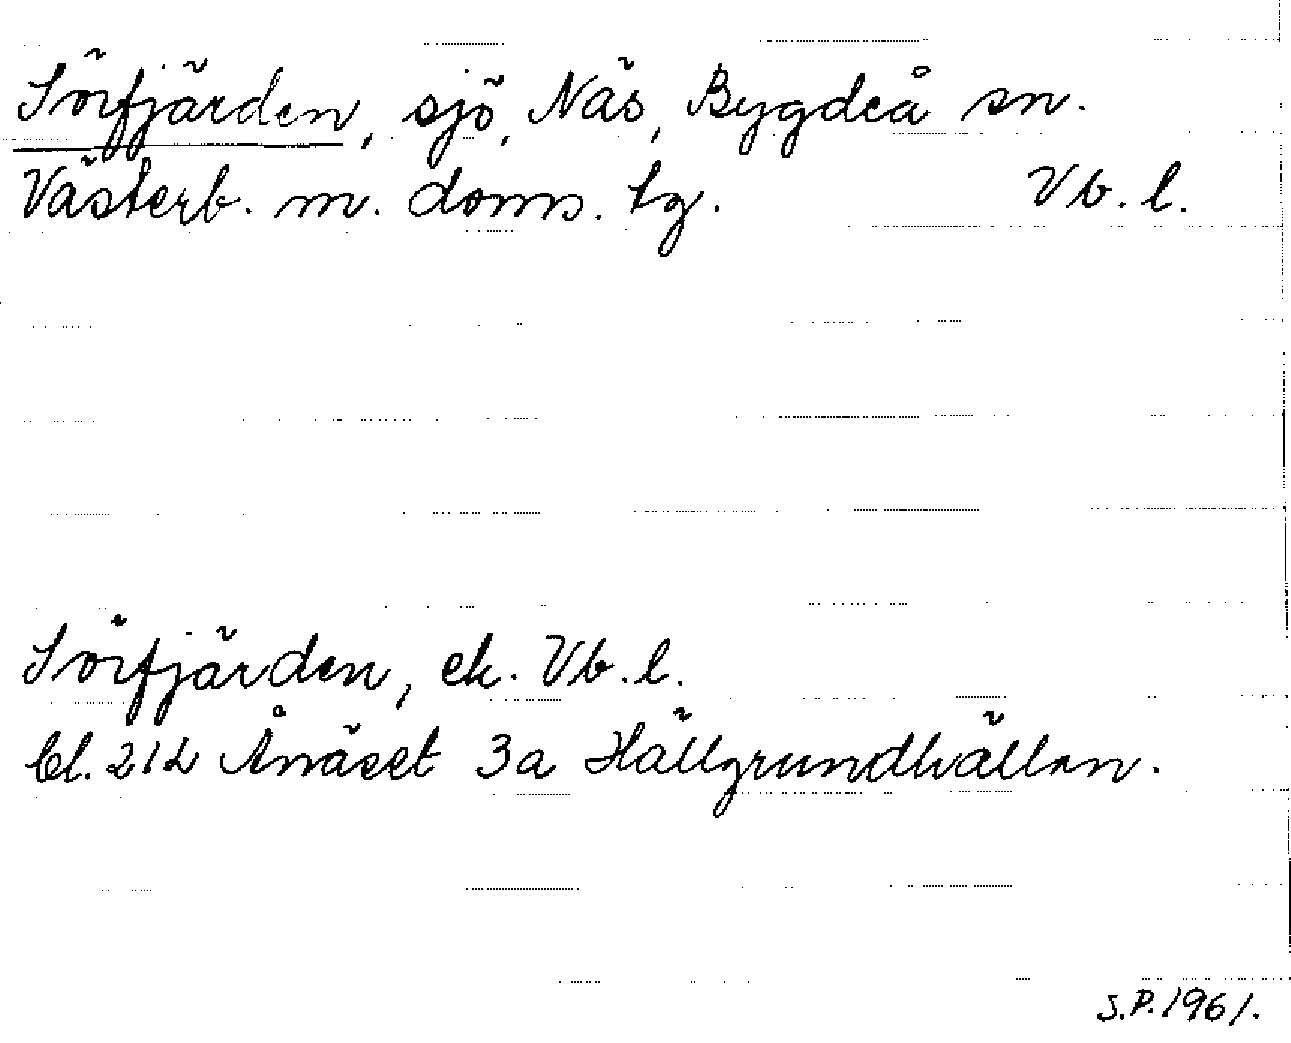 Sörfjärden, sjö, Näs, Bygdeå sn.
Västerb. m. doms. tg. Vb. l.
Sörfjärden, ek. Vb. l.
bl. 212 Ånäset 3a Hällgrundhällan.
S.P. 1961.